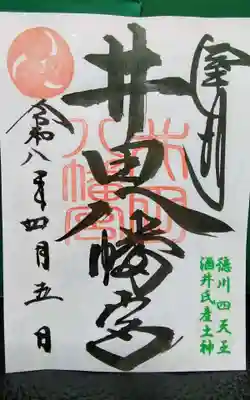 奉拝
井田八幡宮
井田
八幡宮
徳川四天王
酒井氏産土神
令和八年四月五日